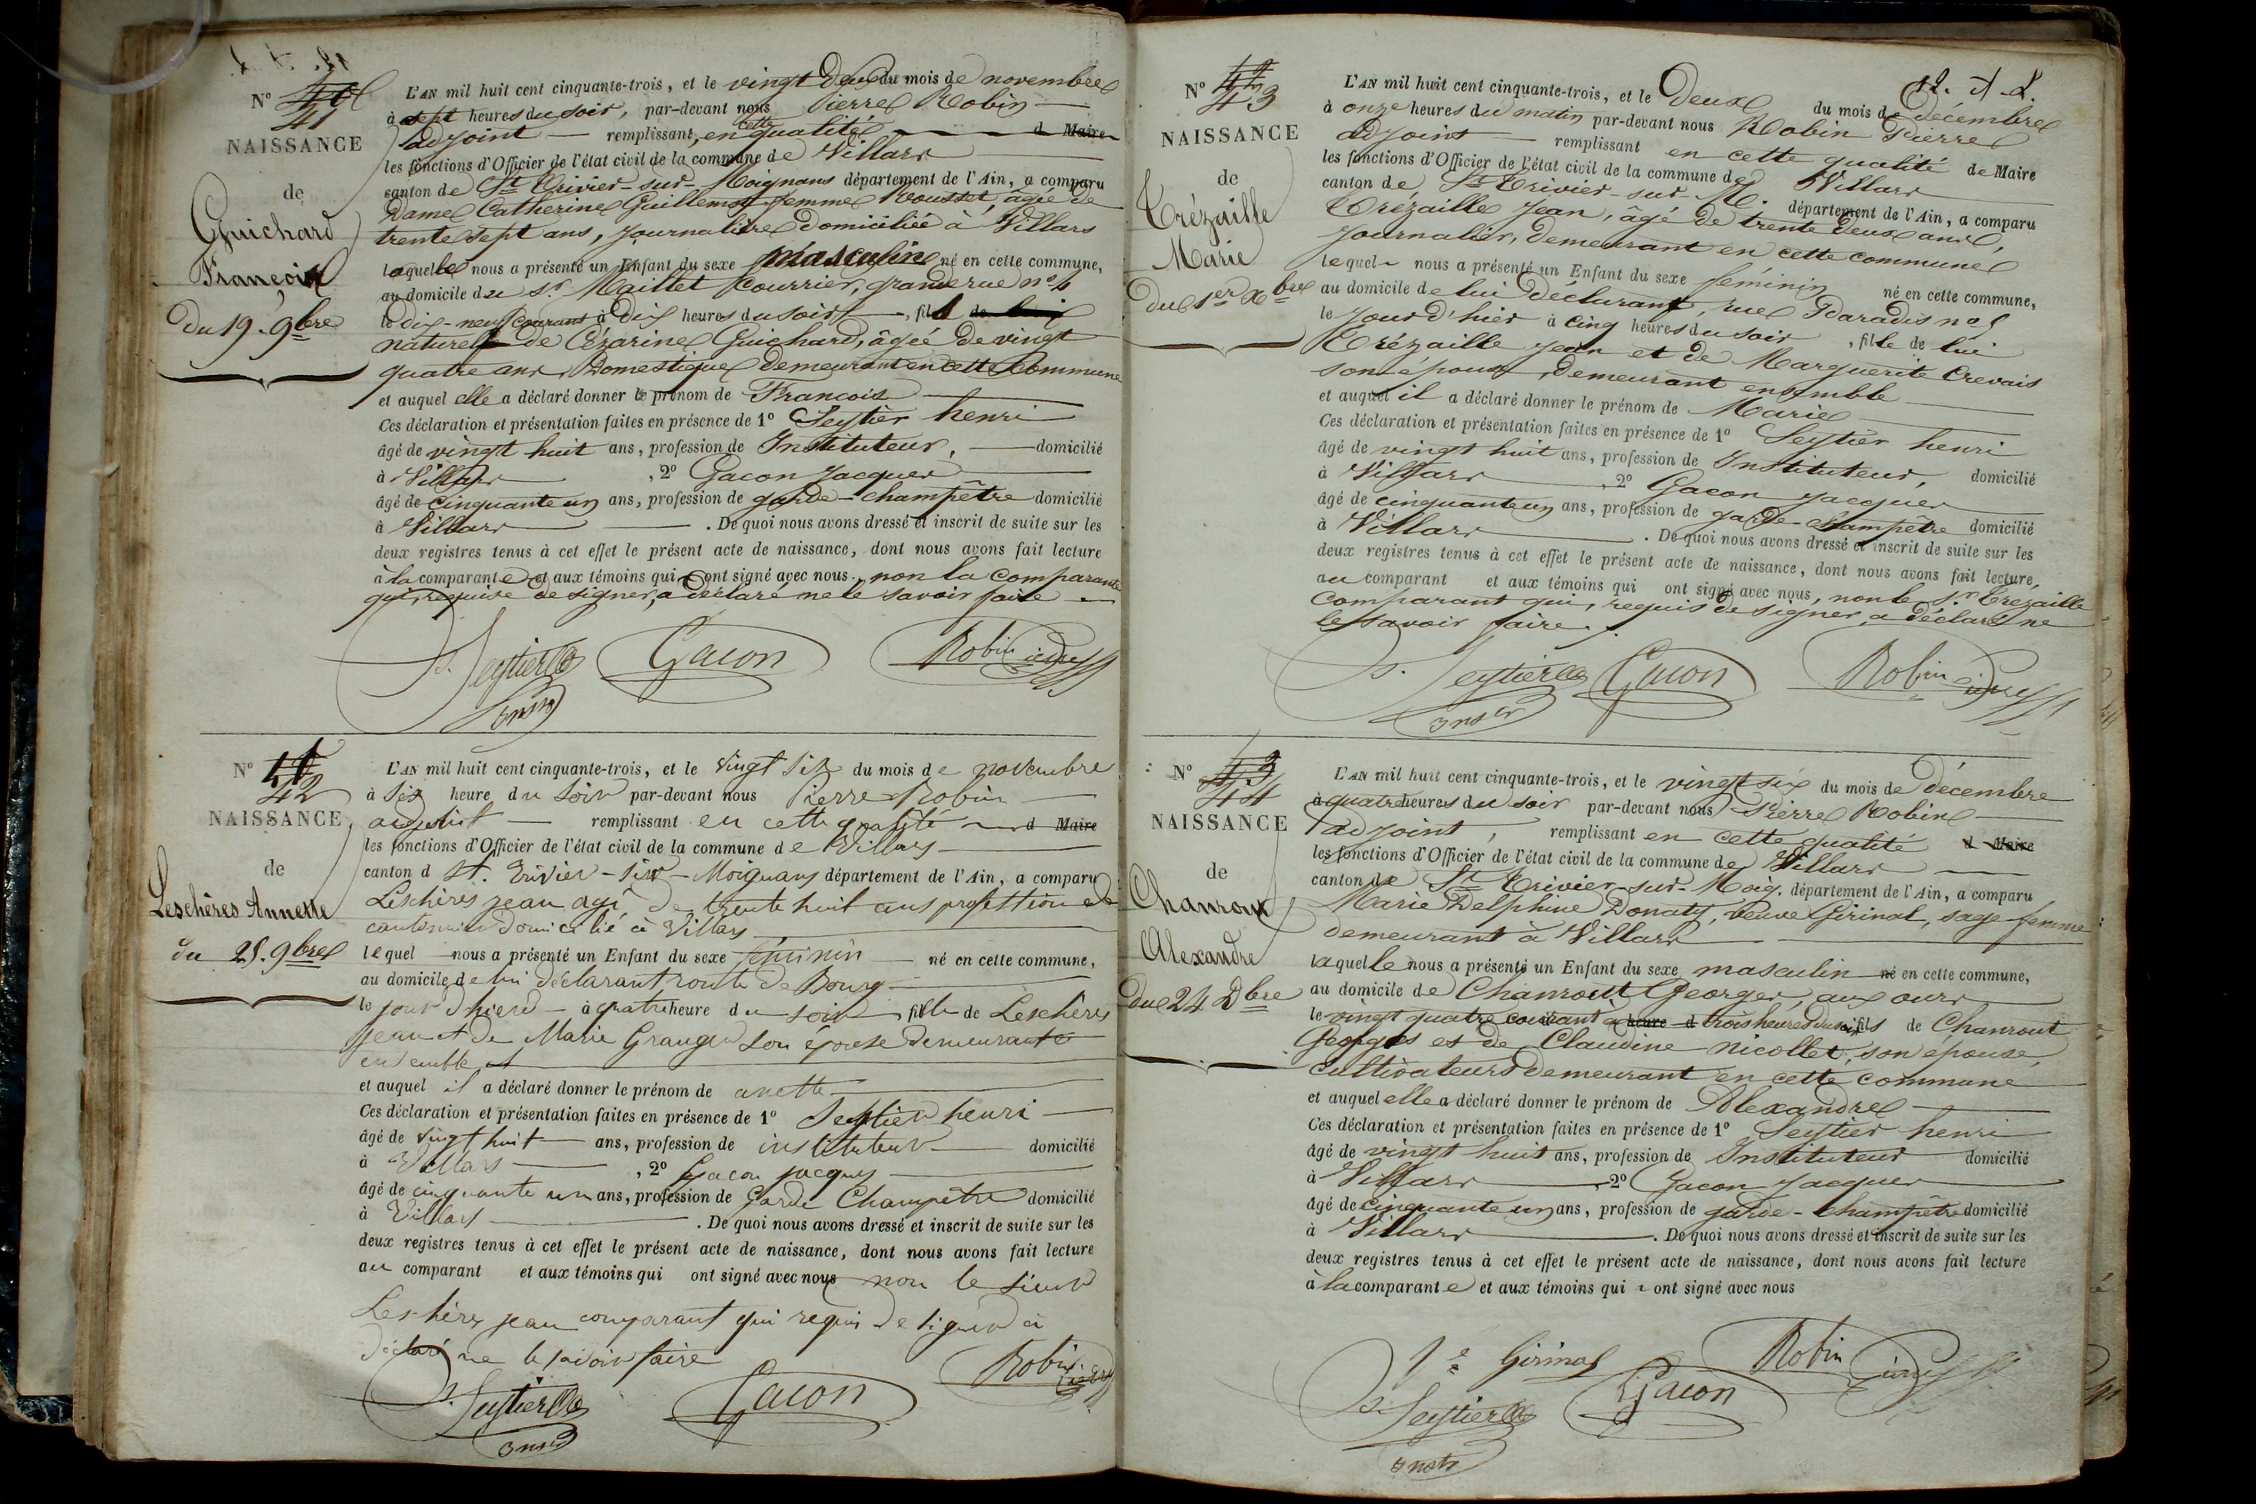 Nº 40
41
NAISSANCE
de
Guichard
François
du 19. 9bre
L'AN mil huit cent cinquante-trois, et le vingt deux du mois de novembre
à sept heures du soir, par-devant nous Pierre Robin
adjoint remplissant, en cette qualité d Maire
les fonctions d'Officier de l'état civil de la commune de Villars
canton de St Trivier-sur-Moignans département de l'Ain, a comparu
Dame Catherine Guillemot femme Rousset, âgée de
trente sept ans, journalière domiciliée à Villars
laquelle nous a présenté un Enfant du sexe masculin né en cette commune,
au domicile du Sr Maillet Courrier, grande rue nº 4
le dix-neuf courant à dix heures du soir, fils de lui
naturel de Cézarine Guichard, âgée de vingt
quatre ans, Domestique demeurant en cette Commune
et auquel elle a déclaré donner le prénom de François
Ces déclaration et présentation faites en présence de 1º Seytier henri
âgé de vingt huit ans, profession de Instituteur, domicilié
à Villars, 2º Gacon Jacques
âgé de cinquante un ans, profession de garde-champêtre domicilié
à Villars. De quoi nous avons dressé et inscrit de suite sur les
deux registres tenus à cet effet le présent acte de naissance, dont nous avons fait lecture
à la comparante et aux témoins qui ont signé avec nous, non la comparante
qui, requise de signer, a déclaré ne le savoir faire.
Seytier Gacon Robin
Nº 41
42
NAISSANCE
de
Leschères Annette
du 25. 9bre
L'AN mil huit cent cinquante-trois, et le vingt six du mois de novembre
à six heure du soir par-devant nous Pierre Robin
adjoint remplissant en cette qualité d Maire
les fonctions d'Officier de l'état civil de la commune de Villars
canton d St. Trivier-sur-Moignans département de l'Ain, a comparu
Leschères jean agé de trente huit ans profession de
cantonnier domicilié à Villars
lequel nous a présenté un Enfant du sexe féminin né en cette commune,
au domicile de lui déclarant, route de Bourg
le jour d'hiere à quatre heure du soir fille de Leschères
jean et de Marie Granger son épouse demeurante
ensemble
et auquel il a déclaré donner le prénom de anette
Ces déclaration et présentation faites en présence de 1º Seytier henri
âgé de vingt huit ans, profession de instituteur domicilié
à Villars, 2º Gacon jacques
âgé de cinquante un ans, profession de Garde Champêtre domicilié
à Villars. De quoi nous avons dressé et inscrit de suite sur les
deux registres tenus à cet effet le présent acte de naissance, dont nous avons fait lecture
au comparant et aux témoins qui ont signé avec nous non le sieur
Leschères jean comparant qui requis de signer a
déclaré ne le savoir faire
Seytier Gacon Robin
12. A. L.
Nº 42
43
NAISSANCE
de
Trézaille
Marie
du 1er Xbre
L'AN mil huit cent cinquante-trois, et le Deux du mois de Décembre
à onze heures du matin par-devant nous Robin Pierre
adjoint remplissant en cette qualité de Maire
les fonctions d'Officier de l'état civil de la commune de Villars
canton de St Trivier-sur-M. département de l'Ain, a comparu
Trézaille Jean, âgé de trente deux ans,
journalier, demeurant en cette commune
lequel nous a présenté un Enfant du sexe féminin né en cette commune,
au domicile de lui déclarant, rue Paradis nº 5
le jour d'hier à cinq heures du soir, fille de lui
Trézaille Jean et de Marguerite Crevais
son épouse, demeurant ensemble
et auquel il a déclaré donner le prénom de Marie
Ces déclaration et présentation faites en présence de 1º Seytier henri
âgé de vingt huit ans, profession de Instituteur, domicilié
à Villars, 2º Gacon Jacques
âgé de cinquante un ans, profession de garde-champêtre domicilié
à Villars. De quoi nous avons dressé et inscrit de suite sur les
deux registres tenus à cet effet le présent acte de naissance, dont nous avons fait lecture,
au comparant et aux témoins qui ont signé avec nous, non le Sr Trézaille
comparant qui, requis de signer, a déclaré ne
le savoir faire.
Seytier Gacon Robin
Nº 43
44
NAISSANCE
de
Chanrout
Alexandre
du 24 Dbre
L'AN mil huit cent cinquante-trois, et le vingt six du mois de Décembre
à quatre heures du soir par-devant nous Pierre Robin
adjoint, remplissant en cette qualité d Maire
les fonctions d'Officier de l'état civil de la commune de Villars
canton de St Trivier-sur-Moig. département de l'Ain, a comparu
Marie Delphine Donaty, veuve Girinal, sage femme
demeurant à Villars
laquelle nous a présenté un Enfant du sexe masculin né en cette commune,
au domicile de Chanrout Georges, aux ours
le vingt quatre courant à heure d trois heures du soir fils de Chanrout
Georges et de Claudine Nicollet, son épouse,
cultivateurs demeurant en cette commune
et auquel elle a déclaré donner le prénom de Alexandre
Ces déclaration et présentation faites en présence de 1º Seytier henri
âgé de vingt huit ans, profession de Instituteur domicilié
à Villars, 2º Gacon Jacques
âgé de cinquante un ans, profession de garde-champêtre domicilié
à Villars. De quoi nous avons dressé et inscrit de suite sur les
deux registres tenus à cet effet le présent acte de naissance, dont nous avons fait lecture
à la comparante et aux témoins qui ont signé avec nous
Ve Girinal Robin
Seytier Gacon